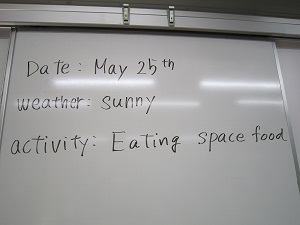 Date: May 25th
weather: sunny
activity: Eating space food